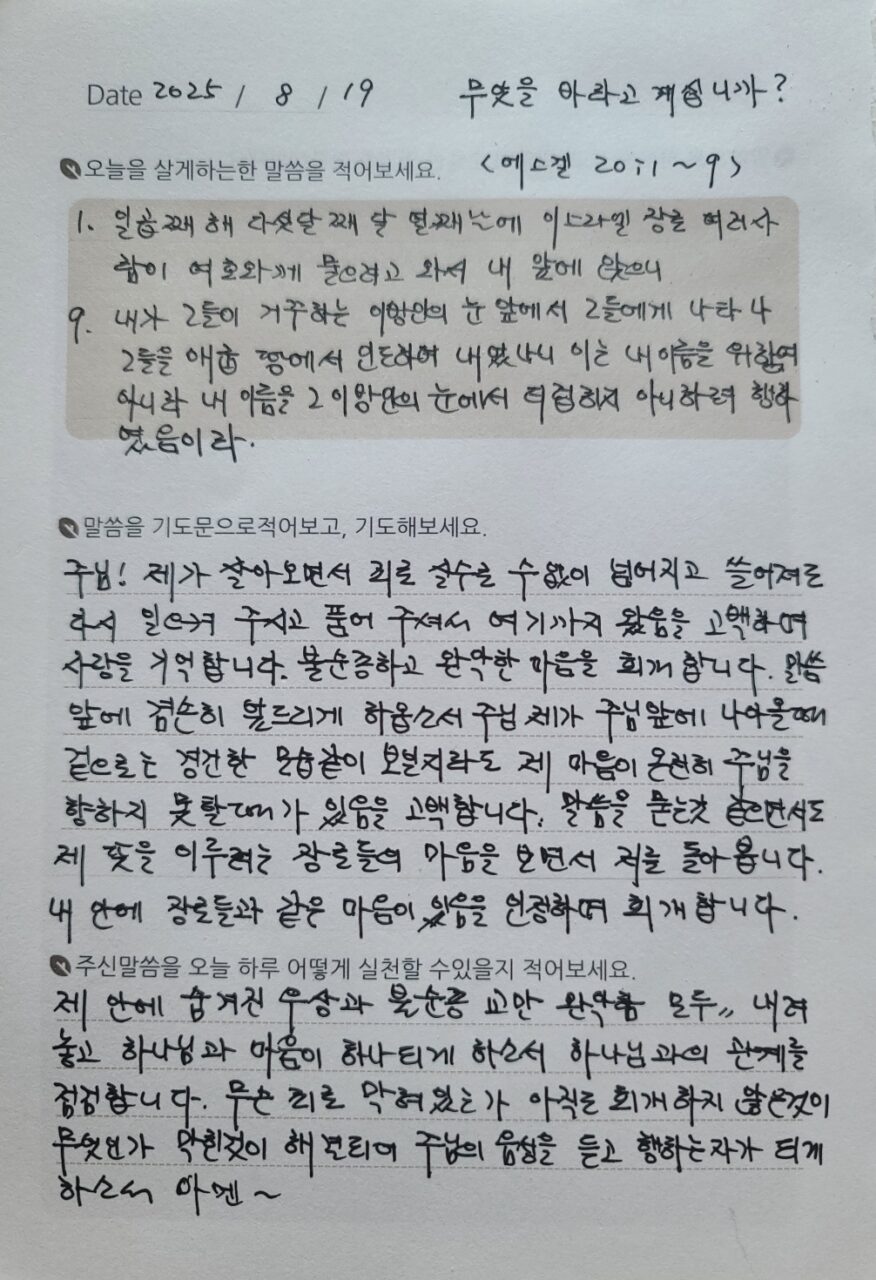 Date 2025 / 8 / 19 무엇을 바라고 계십니까?
오늘을 살게하는한 말씀을 적어보세요. <에스겔 20:1~9>
1. 일곱째 해 다섯달째 달 열째날에 이스라엘 장로 여러사
람이 여호와께 물으려고 와서 내 앞에 앉으니
9. 내가 그들이 거주하는 이방인의 눈 앞에서 그들에게 나타나
그들을 애굽 땅에서 인도하여 내었나니 이는 내 이름을 위함이
아니라 내 이름을 그 이방인의 눈에서 더럽히지 아니하려 행하
였음이라.
말씀을 기도문으로적어보고, 기도해보세요.
주님! 제가 살아오면서 죄로 실수로 수없이 넘어지고 쓸어져도
다시 일으켜 주시고 품어 주셔서 여기까지 왔음을 고백하며
사랑을 기억합니다. 불순종하고 완악한 마음을 회개합니다. 말씀
앞에 겸손히 엎드리게 하옵소서 주님 제가 주님앞에 나아올때
겉으로는 경건한 모습같이 보일지라도 제 마음이 온전히 주님을
향하지 못할때가 있음을 고백합니다. 말씀을 묻는것 같으면서도
제 뜻을 이루려는 장로들의 마음을 보면서 저를 돌아봅니다.
내 안에 장로들과 같은 마음이 있음을 인정하며 회개합니다.
주신말씀을 오늘 하루 어떻게 실천할 수있을지 적어보세요.
제 안에 숨겨진 우상과 불순종 교만 완악함 모두〃 내려
놓고 하나님과 마음이 하나되게 하소서 하나님과의 관계를
점검합니다. 무슨 죄로 막혀있는가 아직도 회개하지 않은것이
무엇인가 막힌것이 해결되어 주님의 음성을 듣고 행하는자가 되게
하소서 아멘~